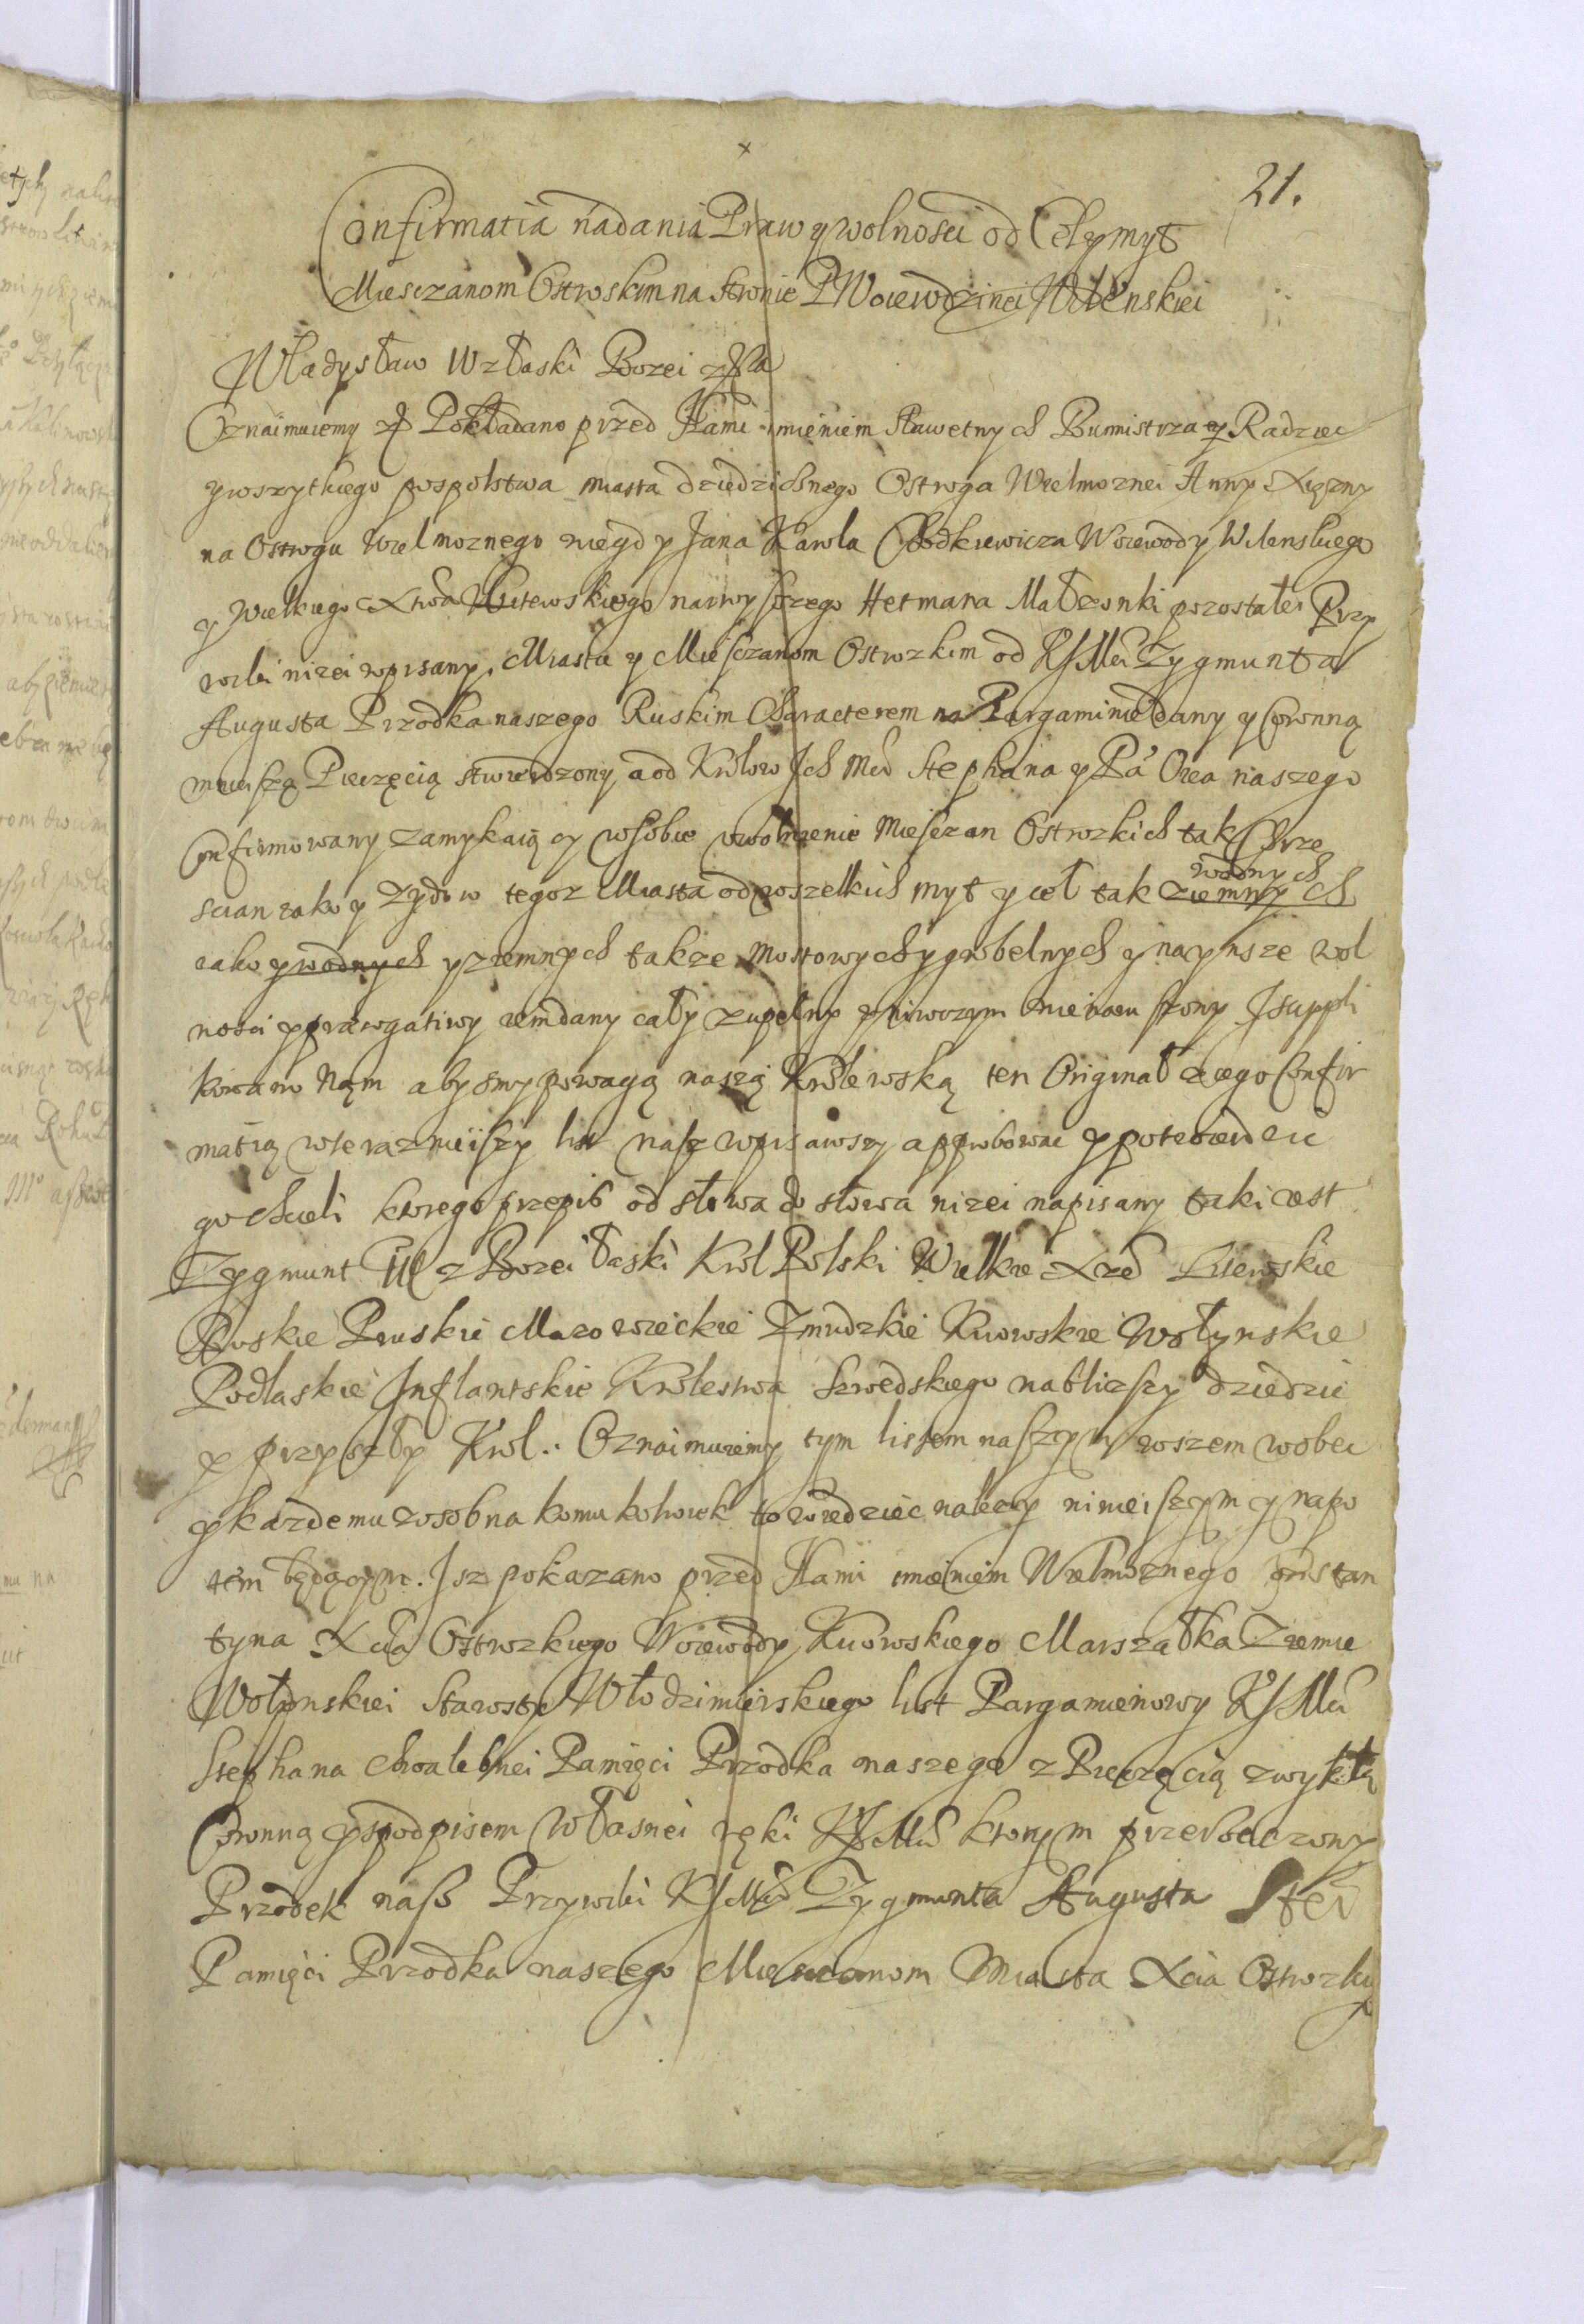 21.
Confirmatia nadania Praw y wolnosci od Cel y myt
Miesczanom Ostroskim na stronie P Woiewodzinei Wilenskiei
Władysław IV z łaski Bozei
Oznaimuiemy Pokładano przed Nami imieniem Sławetnych Burmistrza y Radziec
y wszytkiego pospolstwa miasta dziedzicznego Ostroga Wielmoznei Anny Xięzny
na Ostrogu Wielmoznego niegdy Jana Karola Chodkiewicza Woiewody Wilenskiego
y Wielkiego Xtwa Litewskiego naiwyszszego Hetmana Małzonki pozostałei Przy
wilei nizei wpisany, Miastu y Miesczanom Ostrozkim od KJMci Zygmunta
Augusta Przodka naszego Ruskim Characterem na Pargaminie dany y Coronną
mnieiszą Pieczęcią stwierdzony, a od Krolow Ich Mci Stephana y Pa Oica naszego
Confirmowany zamykaiący w sobie uwolnienie Miesczan Ostrozkich tak Chrze
scian iako y Zydow tegoz Miasta od wszelkich myt y ceł tak ziemnych wodnych
iako y wodnych y ziemnych takze mostowych y grobelnych y na ynsze wol
nosci y prerogatiwy iem dany cały zupełny y niwczym nienaruszony Isuppli
kowano Nąm abysmy powagą naszą Krolewską ten Originał z iego Confir
matią w teraznieiszy list nasz wpisawszy approbowac y potwierdzic
go chcieli ktorego przepis od słowa do słowa nizei napisany taki iest
Zygmunt III z Bozei łaski Krol Polski Wielkie Xzę Litewskie
Ruskie Pruskie Mazowieckie Zmudzkie Kiiowskie Wołynskie
Podlaskie Inflantskie Krolestwa Szwedskiego nablizszy dziedzic
y przyszły Krol. Oznaimuiemy tym listem naszym wszem wobec
y kazdemu zosobna komu kolwiek to wiedziec nalezy ninieiszym y napo
tem będącym. Isz pokazano przed Nami imieniem Wielmoznego Constan
tyna Xcia Ostrozkiego Woiewody Kiiowskiego Marszałka Ziemie
Wołynskiei Starosty Włodzimierskiego list Pargamienowy KJMci
Stephana chwalebnei Pamięci Przodka naszego z Pieczęcią zwykłą
Coronną y s podpisem własnei ręki KJMci ktorym przerzeczony
Przodek nasz Przywilei KJMci Zygmunta Augusta Stei
Pamięci Przodka naszego Miesczanom Miasta Xcia Ostrozkie